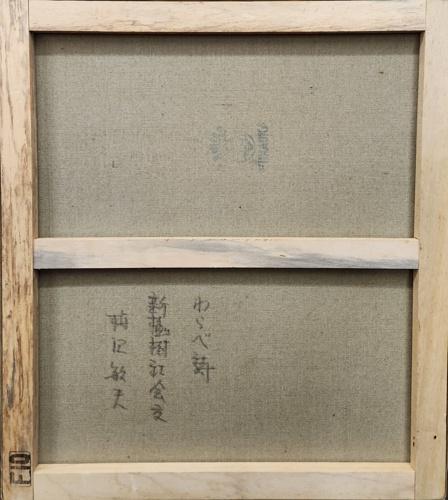 わらべ詩
新槐樹社会友
敏夫
F10